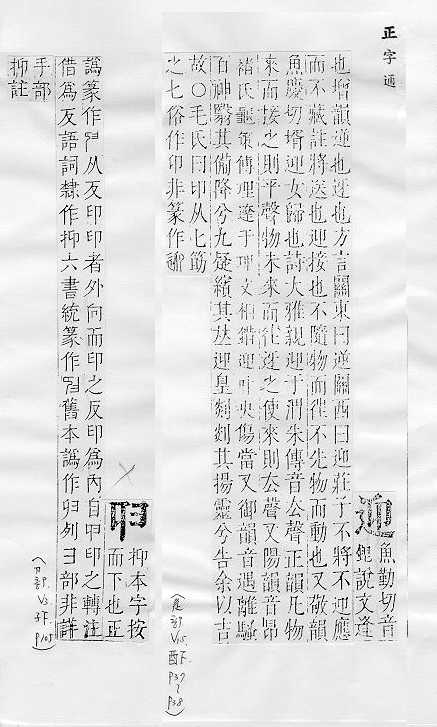 正字通
迎
魚勤切音
說文逢
也增韻逆也迓也方言關東曰逆關西曰迎莊子不將不迎應
而不藏註將送也迎接也不隨物而往不先物而動也又敬韻
魚慶切壻迎女歸也詩大雅親迎于渭朱傳音去聲正韻凡物
來而接之則平聲物未來而往迓之使來則去聲又陽韻音昂
褚氏龜策傳理達于理文相錯迎叶央傷當又御韻音遇離騷
百神翳其備降兮九疑繽其並迎皇剡剡其揚靈兮告余以吉
故〇毛氏曰印从七節
之七俗作卬非篆作
抑本字按
而下也正
譌篆作 从反印印者外向而印之反印為內自印印之轉注
借為反語詞隸作抑六書統篆作 舊本譌作归列彐部非詳
手部
抑註